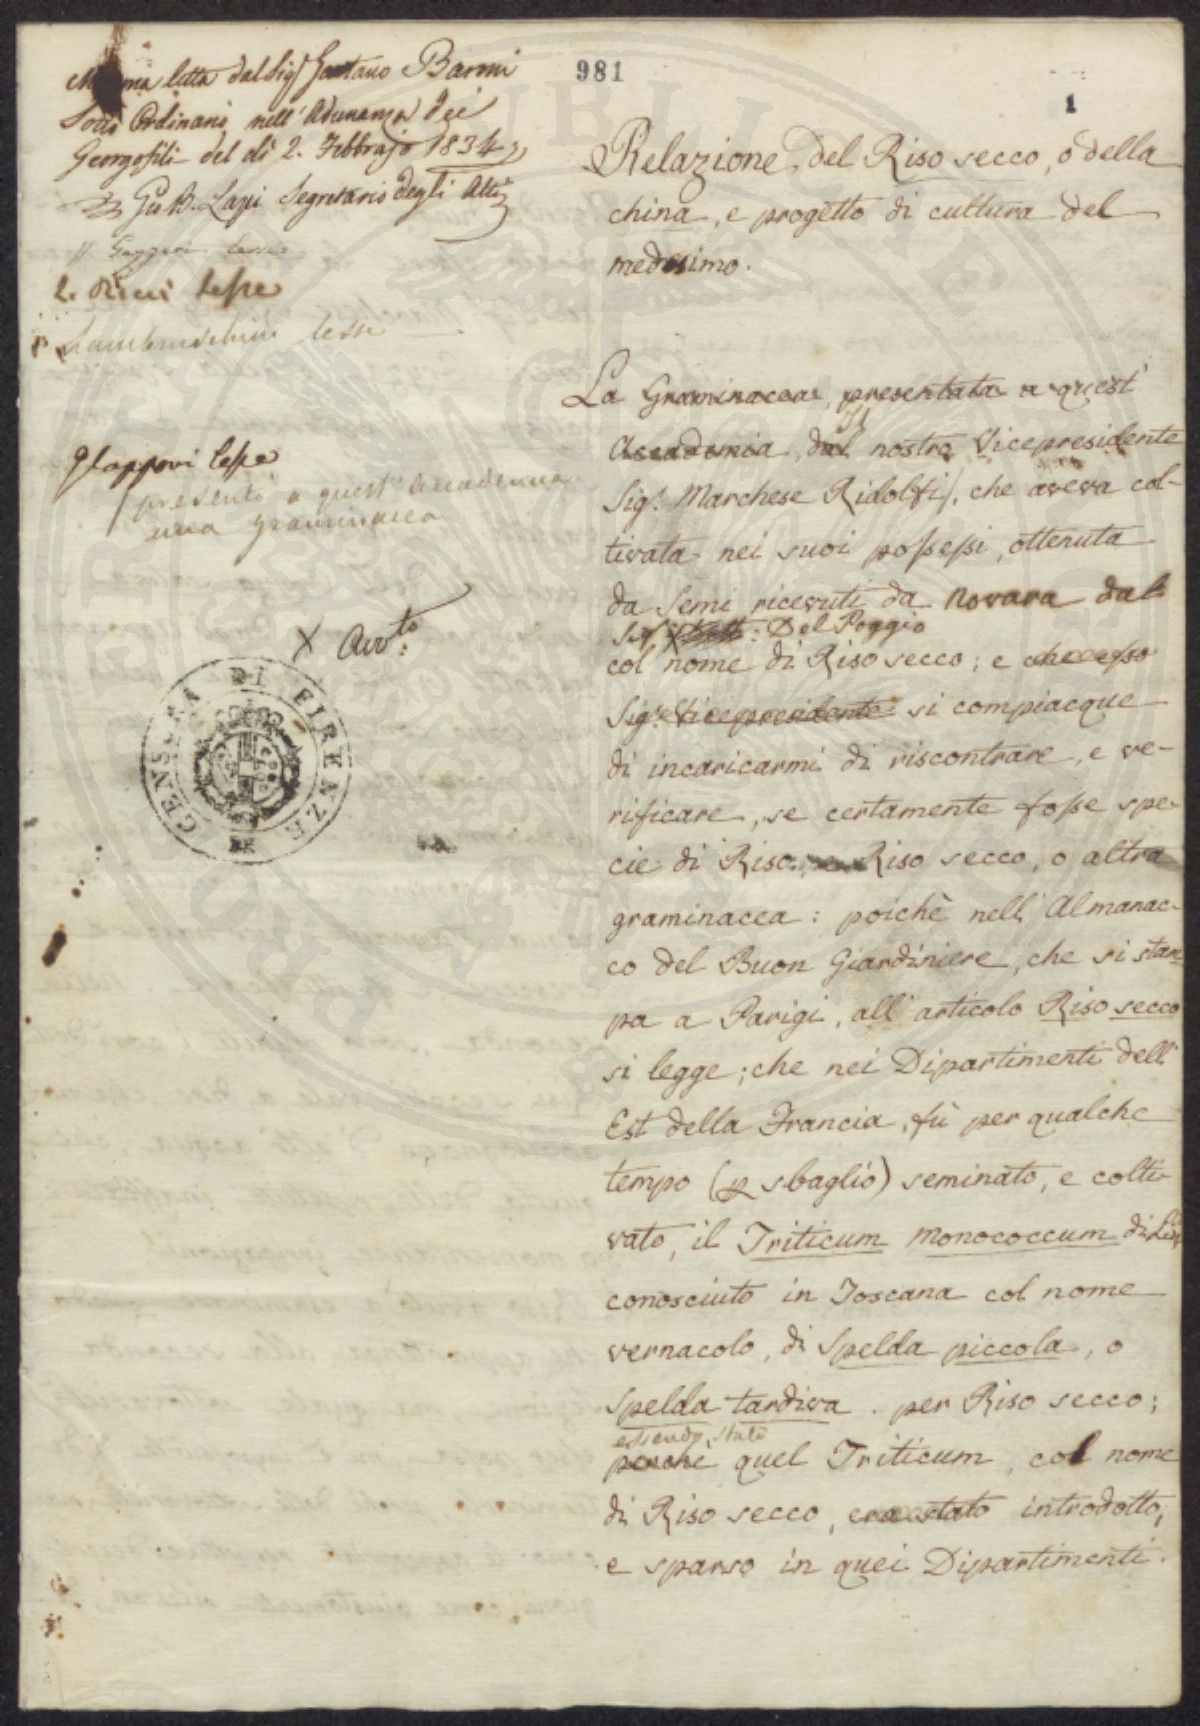 981
1
Memoria letta dal Sigr Gaetano Baroni
Socio Ordinario nell'Adunanza dei
Georgofili del dì 2. Febbrajo 1834
Gio B. Lapi Segretario degli Atti
2. Ricci lesse
Lambruschini lesse
presentò a quest'Accademia
una graminacea
X Avv.to
CENSURA DI FIRENZE
Relazione del Riso secco, o della
china, e progetto di cultura del
medesimo.
La Graminacea, presentata a quest'
Accademia, dal nostro Vicepresidente
Il
Sig.r Marchese Ridolfi, che aveva col-
tivata nei suoi possessi, ottenuta
da Semi ricevuti da Novara dal
Sig. : Del Poggio
col nome di Riso secco; e che esso
Sig.e Vicepresidente si compiacque
di incaricarmi di riscontrare, e ve-
rificare, se certamente fosse spe-
cie di Riso, Riso secco, o altra
graminacea: poichè nell'Almanac-
co del Buon Giardiniere, che si stam
pa a Parigi, all'articolo Riso secco
si legge; che nei Dipartimenti dell'
Est della Francia, fù per qualche
tempo (p sbaglio) seminato, e colti-
vato, il Triticum monococcum di Lin
conosciuto in Toscana col nome
vernacolo, di Spelda piccola, o
Spelda tardiva. per Riso secco;
essendo stato
perchè quel Triticum, col nome
di Riso secco, era stato introdotto,
e sparso in quei Dipartimenti.